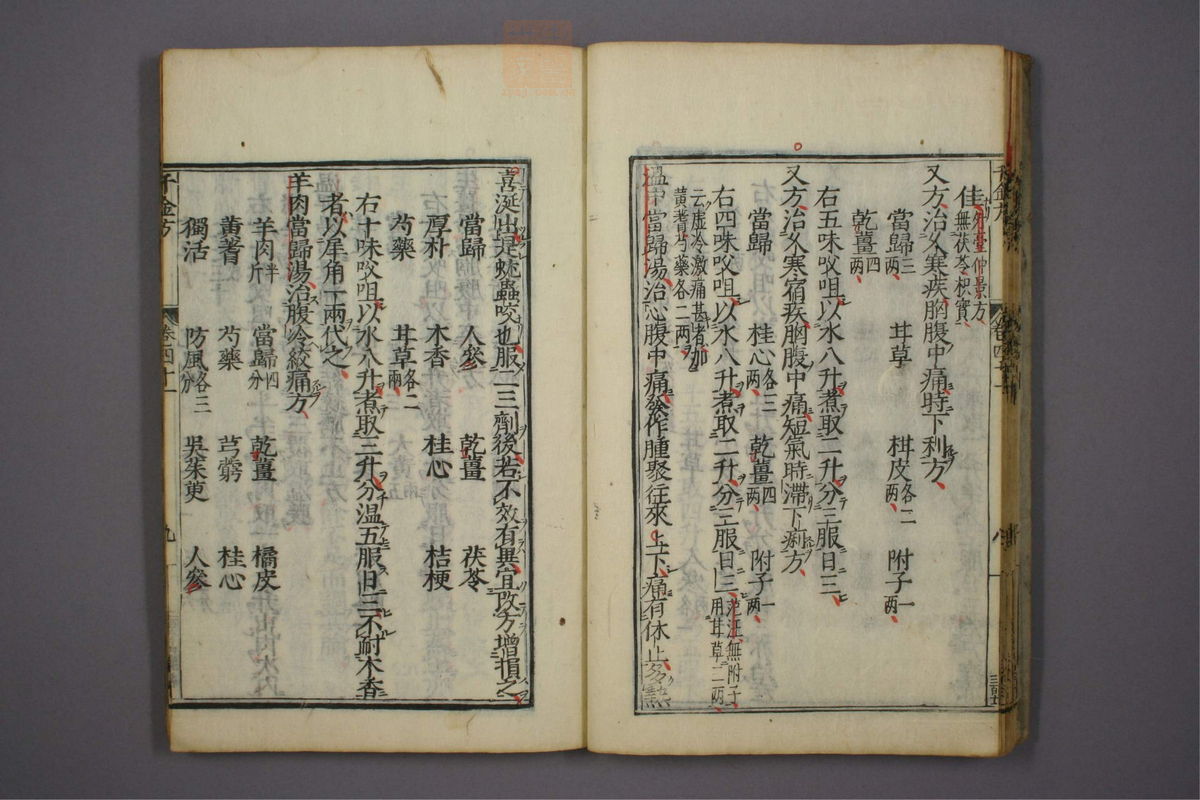 千金方
卷四十一
八
佳外臺仲景方無茯苓枳實
又方治久寒疾胸腹中痛時下利方
當歸三兩 甘草 柑皮各二兩 附子一兩
乾薑四兩
右五味㕮咀以水八升煮取二升分三服日三
又方治久寒宿疾胸腹中痛短氣時滯下痢方
當歸 桂心各三兩 乾薑四兩 附子一兩
右四味㕮咀以水八升煮取二升分三服日三范汪無附子用甘草二兩
云虛冷激痛甚者加黃耆芍藥各二兩
溫中當歸湯治心腹中痛發作腫聚往來上下痛有休止多熱
喜涎出是蚘蟲咬也服二三劑後若不效有異宜改方增損之
當歸 人參 乾薑 茯苓
厚朴 木香 桂心 桔梗
芍藥 甘草各二兩
右十味㕮咀以水八升煮取三升分溫五服日三不耐木香
者以犀角一兩代之
羊肉當歸湯治腹冷絞痛方
羊肉半斤 當歸四分 乾薑 橘皮
黃耆 芍藥 芎藭 桂心
獨活 防風各三分 吳茱萸 人參
千金方
卷四十一
九